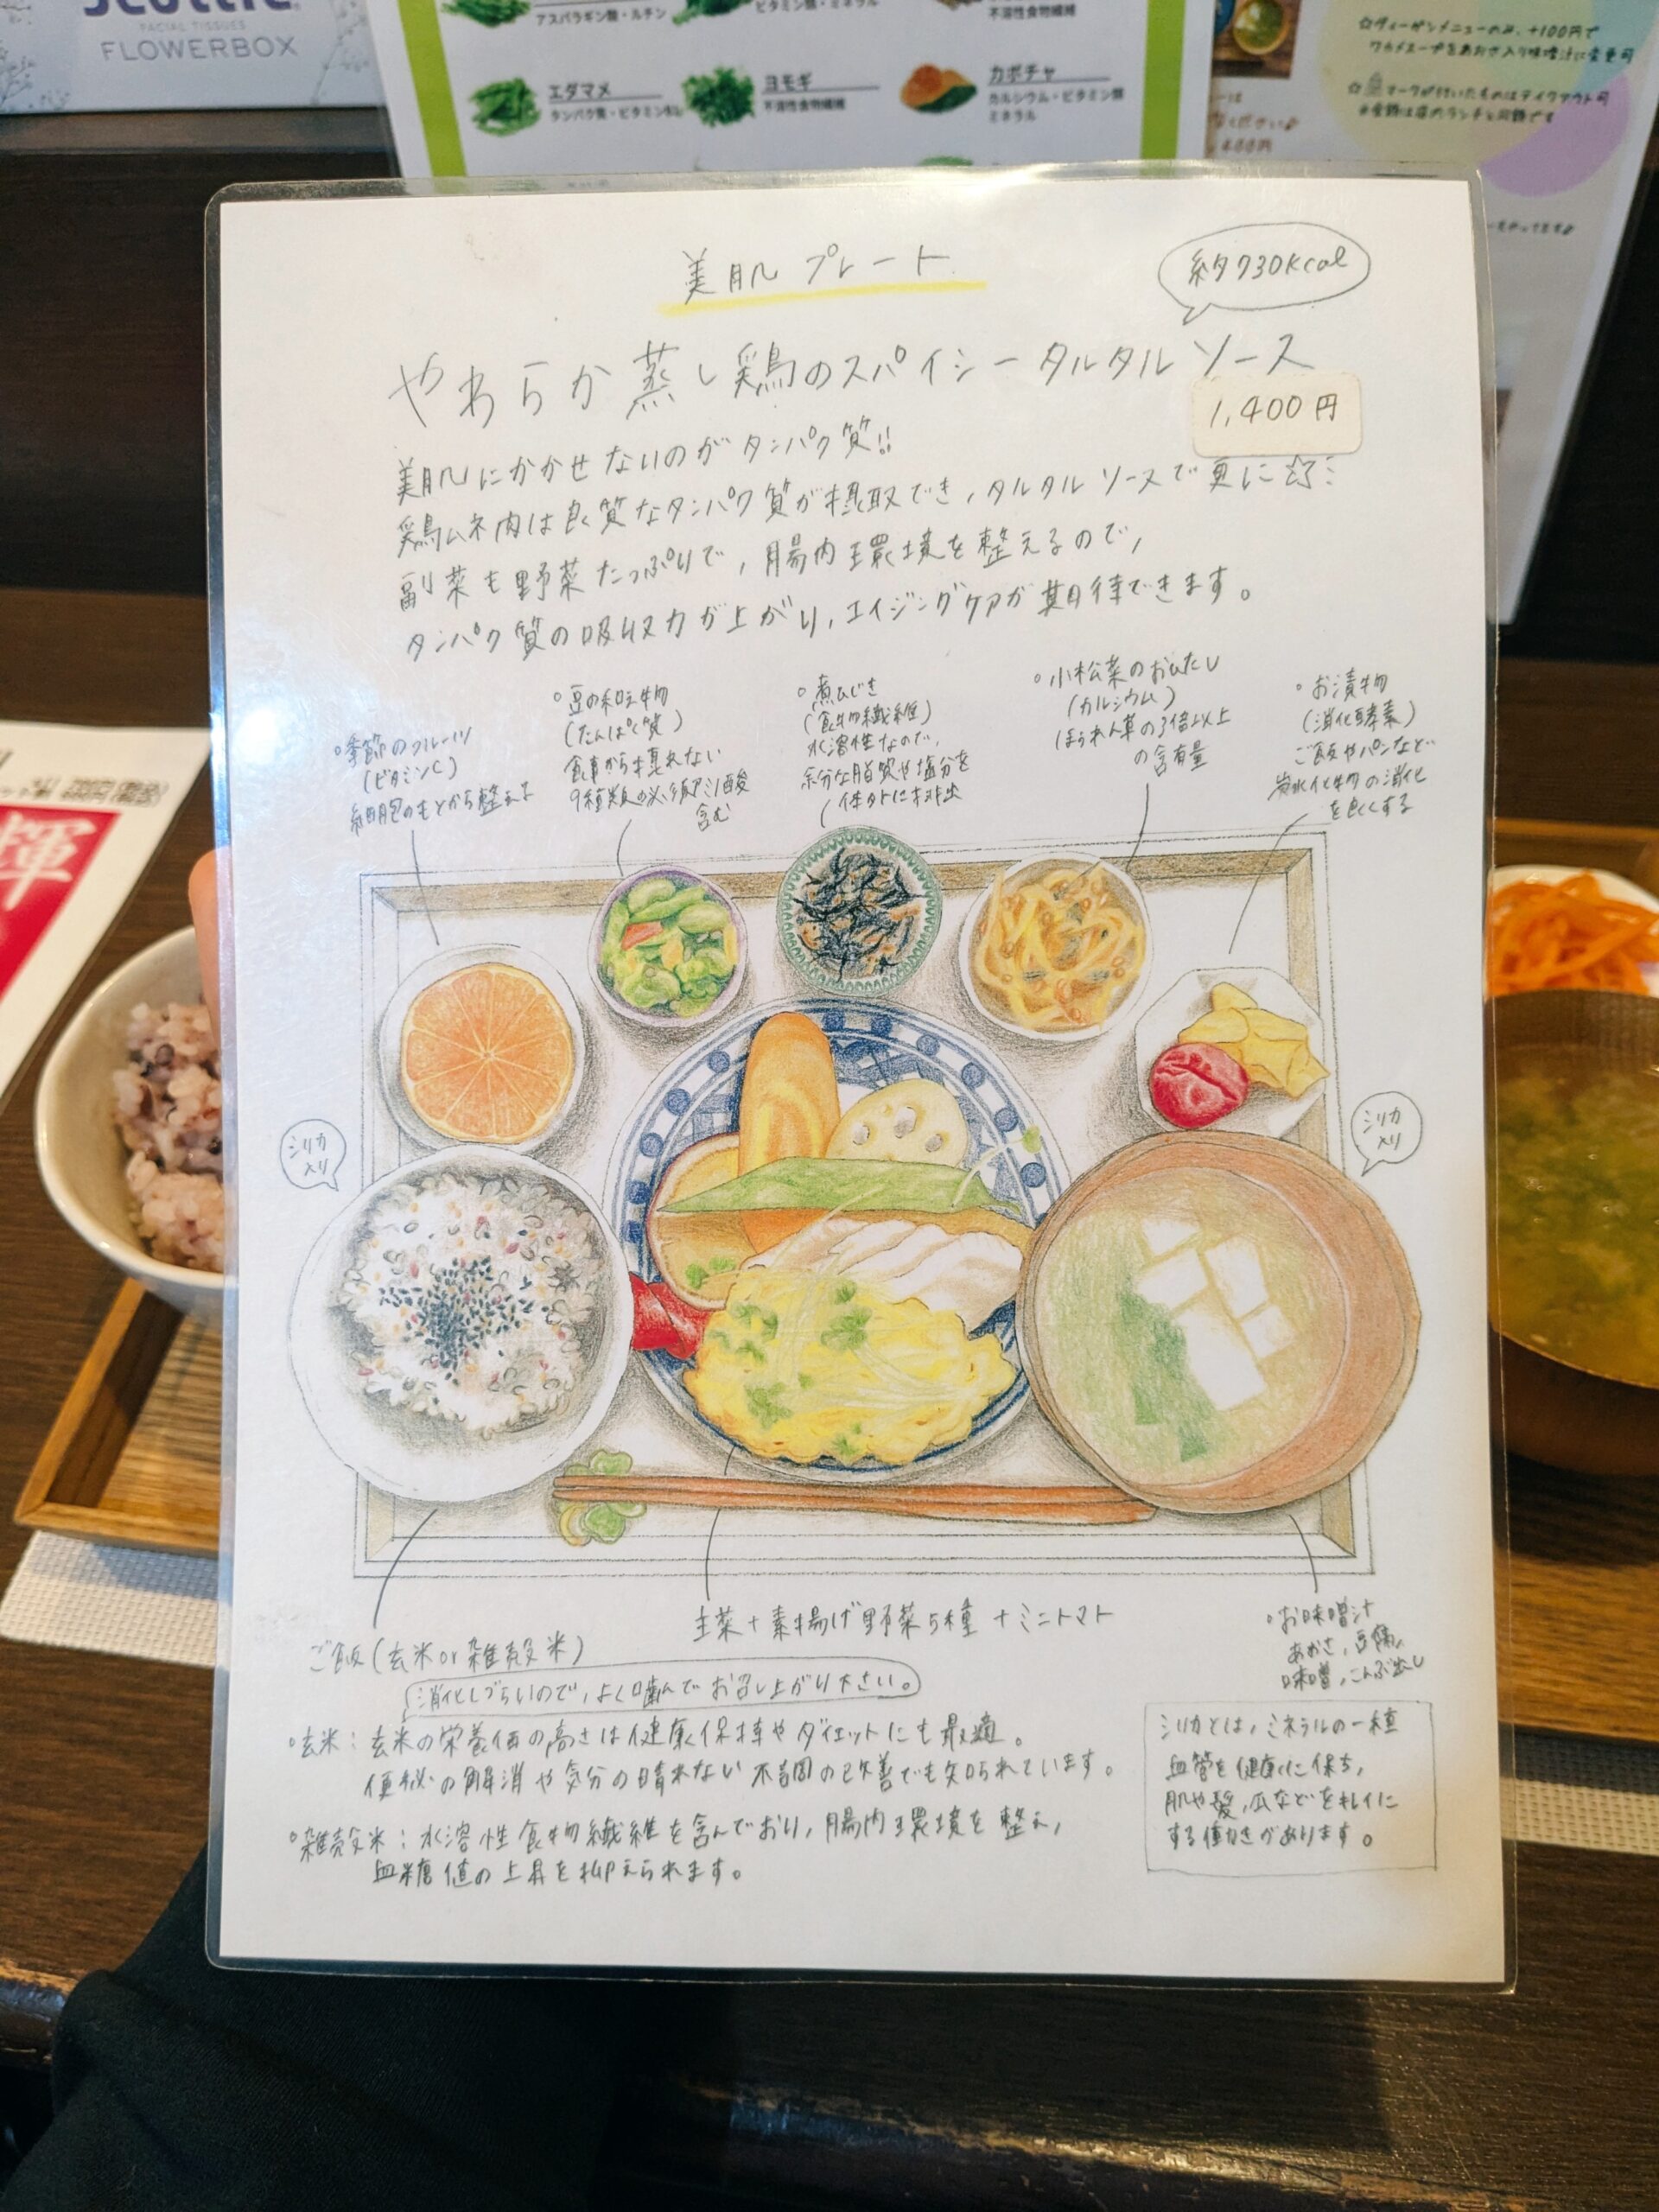 FACIAL TISSUES
FLOWERBOX
アスパラギン酸・ルチン
ビタミン類・ミネラル
不溶性食物繊維
エダマメ
タンパク質・ビタミンB1
ヨモギ
不溶性食物繊維
カボチャ
カルシウム・ビタミン類
ミネラル
☆ヴィーガンメニューのみ、+100円で
ワカメスープをあおさ入り味噌汁に変更可
マークが付いたものはテイクアウト可
美肌プレート
約730kcal
やわらか蒸し鶏のスパイシータルタルソース
1,400円
美肌にかかせないのがタンパク質!!
鶏ムネ肉は良質なタンパク質が摂取でき、タルタルソースで更に☆
副菜も野菜たっぷりで、腸内環境を整えるので、
タンパク質の吸収力が上がり、エイジングケアが期待できます。
・季節のフルーツ
(ビタミンC)
細胞のもとから整える
・豆の和え物
(たんぱく質)
食事から摂れない
9種類の必須アミノ酸
含む
・煮ひじき
(食物繊維)
水溶性なので、
余分な脂質や塩分を
体外に排出
・小松菜のおひたし
(カルシウム)
ほうれん草の3倍以上
の含有量
・お漬物
(消化酵素)
ご飯やパンなど
炭水化物の消化
を良くする
シリカ
入り
シリカ
入り
主菜+素揚げ野菜5種+ミニトマト
・お味噌汁
あおさ、豆腐、
味噌、こんぶ出し
ご飯(玄米or雑穀米)
消化しづらいので、よく噛んでお召し上がり下さい。
・玄米:玄米の栄養価の高さは健康保持やダイエットにも最適。
便秘の解消や気分の晴れない不調の改善でも知られています。
・雑穀米:水溶性食物繊維を含んでおり、腸内環境を整え、
血糖値の上昇を抑えられます。
シリカとは、ミネラルの一種
血管を健康に保ち、
肌や髪、爪などをキレイに
する働きがあります。